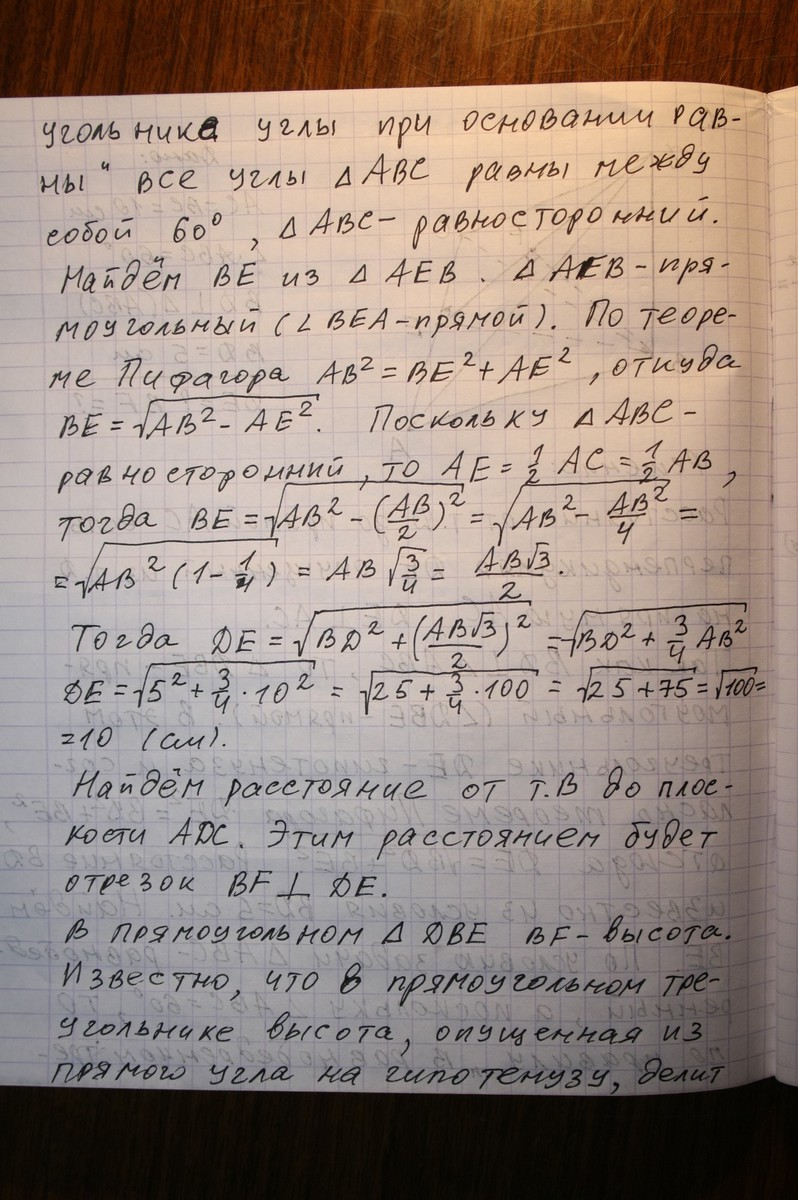 угольника углы при основании рав-
ны" все углы △ABC равны между
собой 60°, △ABC- равносторонний.
Найдём BE из △AEB. △AEB-пря-
моугольный (∠BEA-прямой). По теоре-
ме Пифагора AB² = BE² + AE², откуда
BE = √(AB² - AE²). Поскольку △ABC-
равносторонний, то AE = 1/2 AC = 1/2 AB,
тогда BE = √(AB² - (AB/2)²) = √(AB² - AB²/4) =
= √(AB²(1 - 1/4)) = AB √(3/4) = AB√3/2.
Тогда DE = √(BD² + (AB√3/2)²) = √(BD² + 3/4 AB²)
DE = √(5² + 3/4 · 10²) = √(25 + 3/4 · 100) = √(25 + 75) = √100 =
= 10 (см).
Найдём расстояние от т.B до плос-
кости ADC. Этим расстоянием будет
отрезок BF ⊥ DE.
В прямоугольном △DBE BF- высота.
Известно, что в прямоугольном тре-
угольнике высота, опущенная из
прямого угла на гипотенузу, делит